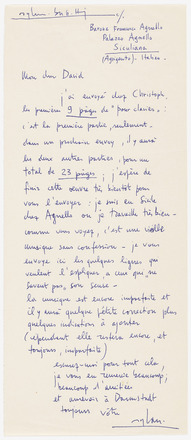 c/.
Barone Francesco Agnello
Palazzo Agnello
Siculiana
(Agrigento). Italia.
Mon cher David
j'ai envoyé chez Christoph,
les premières 9 pages de "pour clavier":
c'est la première partie, seulement.
dans un prochain envoy, il y aura
les deux autres parties, pour un
total de 23 pages; j'espère de
finir cette œuvre très bientôt pour
vous l'envoyer: je suis en Sicile
chez Agnello où je travaille très bien.
comme vous voyez, c'est une
musique sans confession. je vous
envoye ici les quelques lignes qui
veulent l'expliquer, à ceux que ne
savent pas, son sense.
la musique est encore imparfaite et
il y aura quelque petite correction plus
quelques indications à ajouter
(cependant elle restera encore, et
toujours, imparfaite)
excusez-moi pour tout cela
je vous en remercie beaucoup,
beaucoup d'amitiées
et au revoir à Darmstadt
toujours vôtre